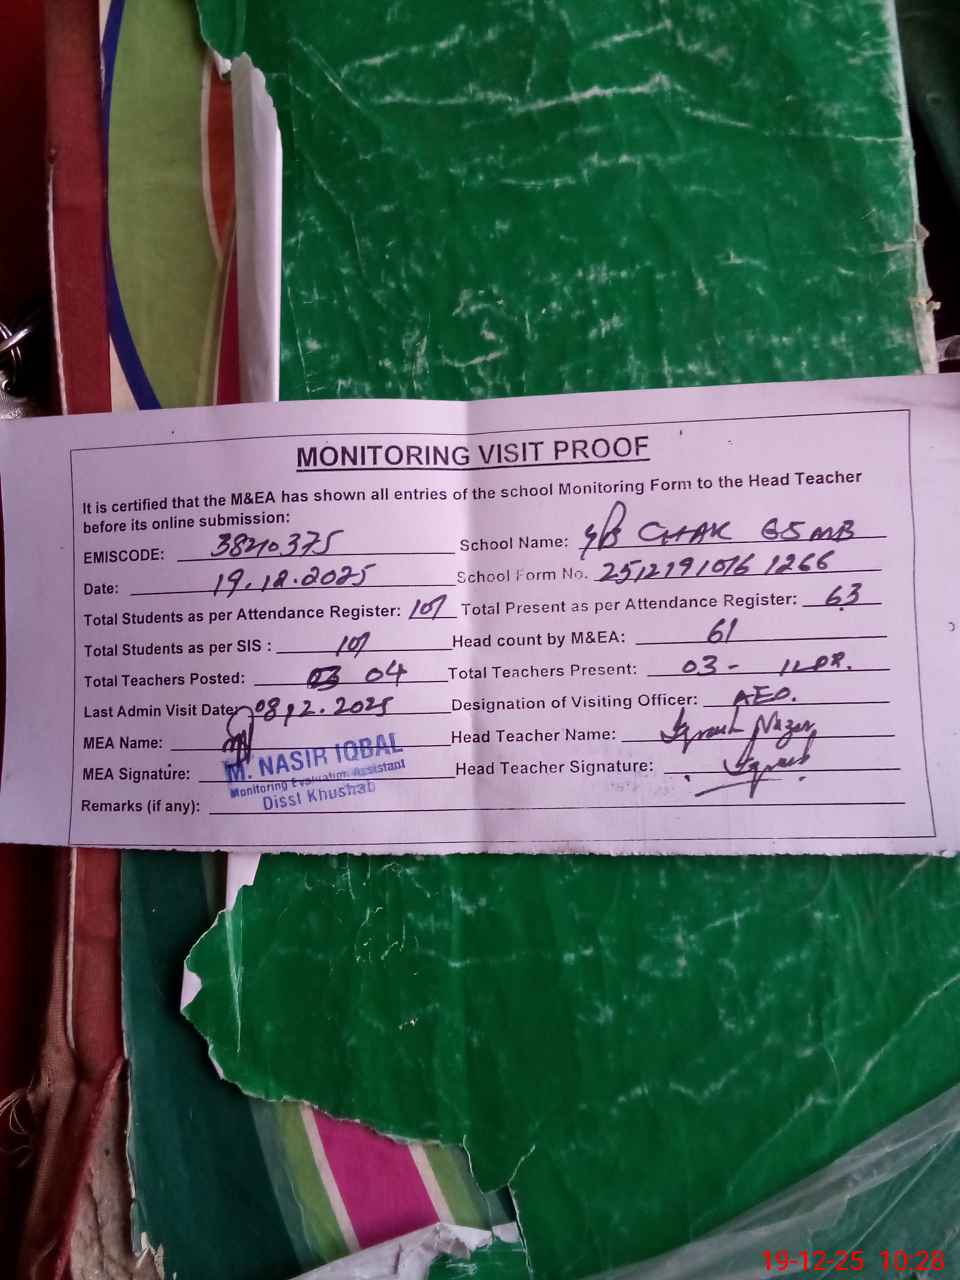 MONITORING VISIT PROOF
It is certified that the M&EA has shown all entries of the school Monitoring Form to the Head Teacher
before its online submission:
EMISCODE: 38240375 School Name: CHAK 65 MB
Date: 19.12.2025 School Form No. 2512191076 1266
Total Students as per Attendance Register: 107 Total Present as per Attendance Register: 63
Total Students as per SIS : 107 Head count by M&EA: 61
Total Teachers Posted: 04 Total Teachers Present: 03 -
Last Admin Visit Date: 08.12.2025 Designation of Visiting Officer: AEO.
MEA Name: Head Teacher Name: Nazer
MEA Signature: Head Teacher Signature:
M. NASIR IQBAL
Monitoring Evaluation Assistant
Disst Khushab
Remarks (if any):
19-12-25 10:28